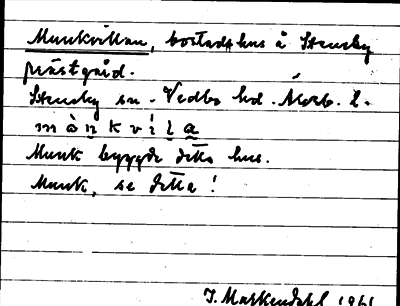 Munkvillan, bostadshus å Stenby
prästgård.
Stenby sn. Vedbo hd. Älvsb. l.
mȧnkvila
Munk byggde detta hus.
Munk, se detta!
J. Markendahl 1961